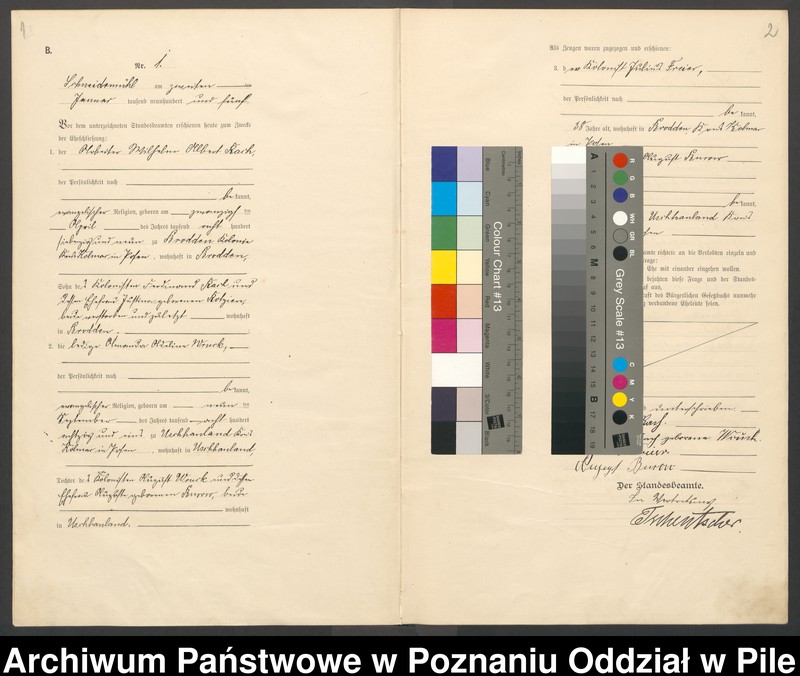 1
B.
Nr. 1.
Schneidemühl am zweiten
Januar tausend neunhundert und fünf
Vor dem unterzeichneten Standesbeamten erschienen heute zum Zwecke
der Eheschließung:
1. der Arbeiter Wilhelm Albert
der Persönlichkeit nach
bekannt,
evangelischer Religion, geboren am zwanzigsten
April des Jahres tausend acht hundert
siebenzig und neun zu Krodden Kolonie
Kreis Kolmar in Posen, wohnhaft in Krodden,
Sohn des Kolonisten Ferdinand und
dessen Ehefrau Justine geborenen
beide verstorben und zuletzt wohnhaft
in Krodden.
2. die ledige Amanda Pauline Wruck,
der Persönlichkeit nach
bekannt,
evangelischer Religion, geboren am neunten
September des Jahres tausend acht hundert
achtzig und eins zu Uschhauland Kreis
Kolmar in Posen, wohnhaft in Uschhauland
Tochter des Kolonisten August Wruck und dessen
Ehefrau Auguste geborenen Burow, beide
wohnhaft
in Uschhauland.
2
Als Zeugen waren zugezogen und erschienen:
3. der Kolonist Julius Freier,
der Persönlichkeit nach
bekannt,
38 Jahre alt, wohnhaft in Krodden Kreis Kolmar
in Posen
August Burow
bekannt,
Uschhauland Kreis
amte richtete an die Verlobten einzeln und
rage:
Ehe mit einander eingehen wollen.
bejahten diese Frage und der Standes-
aus,
raft des Bürgerlichen Gesetzbuchs nunmehr
verbundene Eheleute seien.
unterschrieben
geborene Wruck.
August Burow
Der Standesbeamte.
In Vertretung
Tschentscher.
Colour Chart #13
Blue
Cyan
Green
Yellow
Red
Magenta
White
3/Color
Black
Grey Scale #13
A
1
2
3
4
5
6
M
8
9
10
11
12
13
14
15
B
17
18
19
R
G
B
WH
GR
BL
C
M
Y
K
Archiwum Państwowe w Poznaniu Oddział w Pile